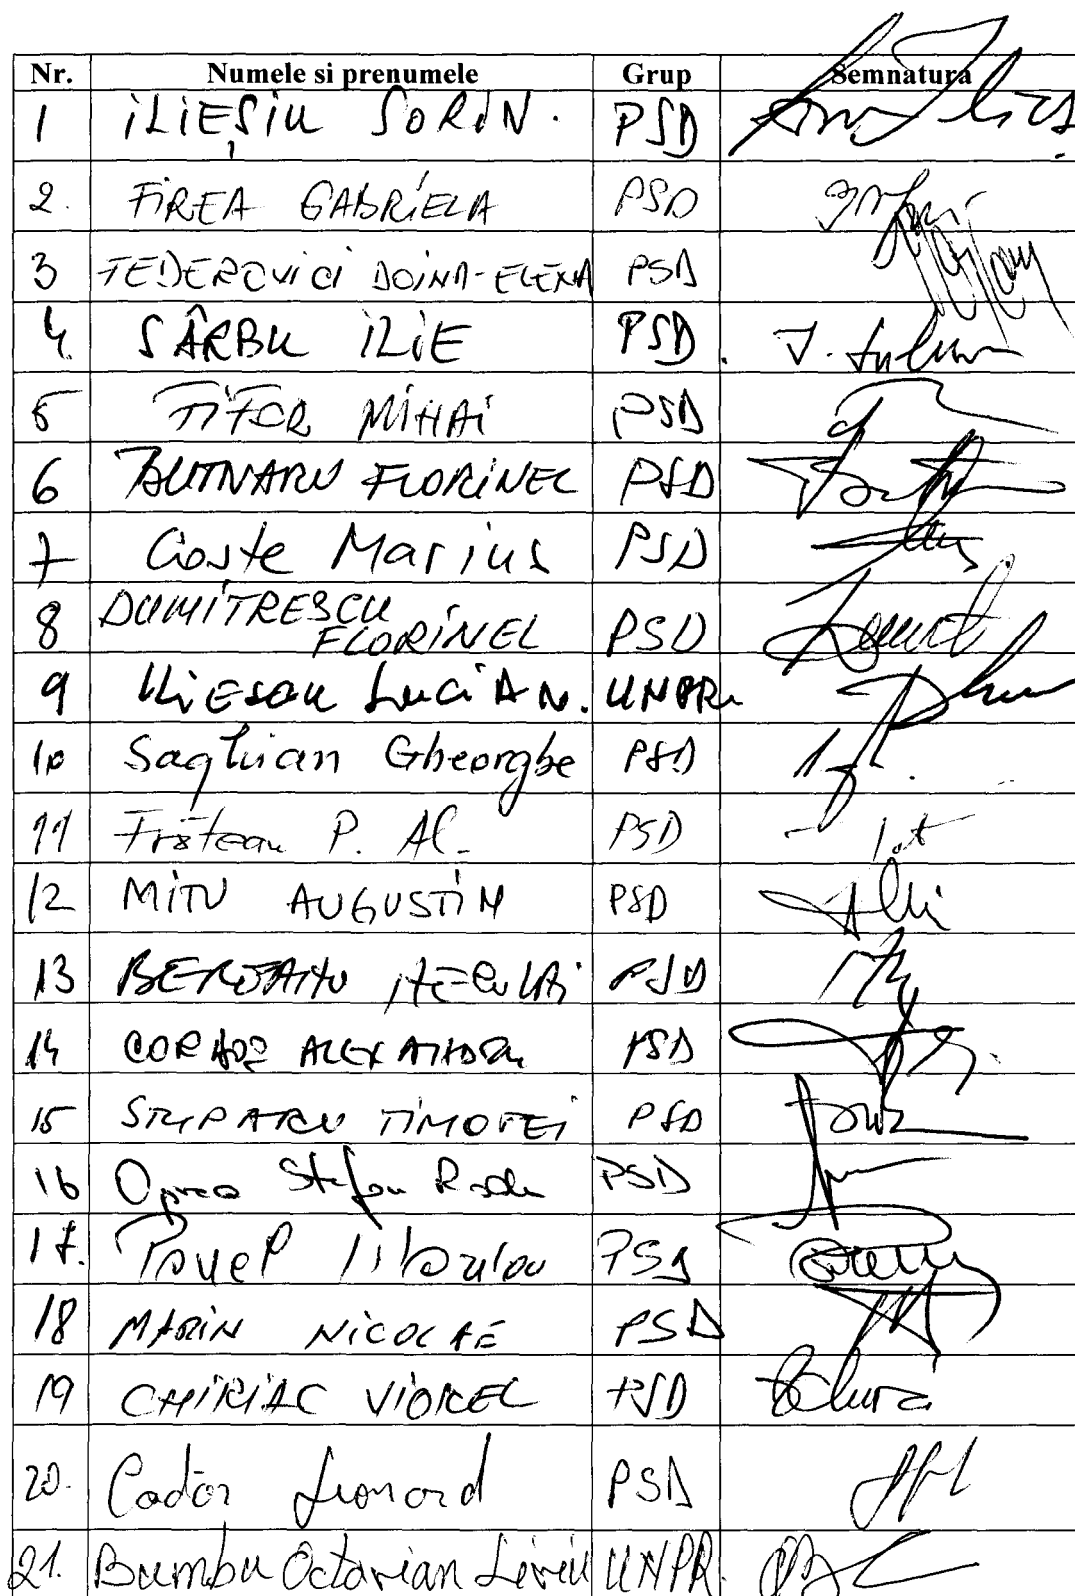 Nr. Numele si prenumele Grup Semnatura
1 ILIEȘIU SORIN. PSD
2. FIREA GABRIELA PSD
3 TEDEROVICI DOINA-ELENA PSD
4. SÂRBU ILIE PSD.
5 TIFOR MIHAI PSD
6 BUTNARU FLORINEL PSD
7 Coste Marius PSD
8 DUMITRESCU
FLORINEL PSD
9 ILIESCU LUCIAN. UNPR.
10 Saghian Gheorghe PSD
11 P. Al. PSD
12 MITU AUGUSTIN PSD
13 PSD
14 PSD
15 TIMOFEI PSD
16 Oprea Stefan Radu PSD
17. Pavel PSD
18 MARIN NICOLAE PSD
19 CHIRIAC VIOREL PSD
20. Cadăr Leonard PSD
21. Bumbu Octavian Liviu UNPR.